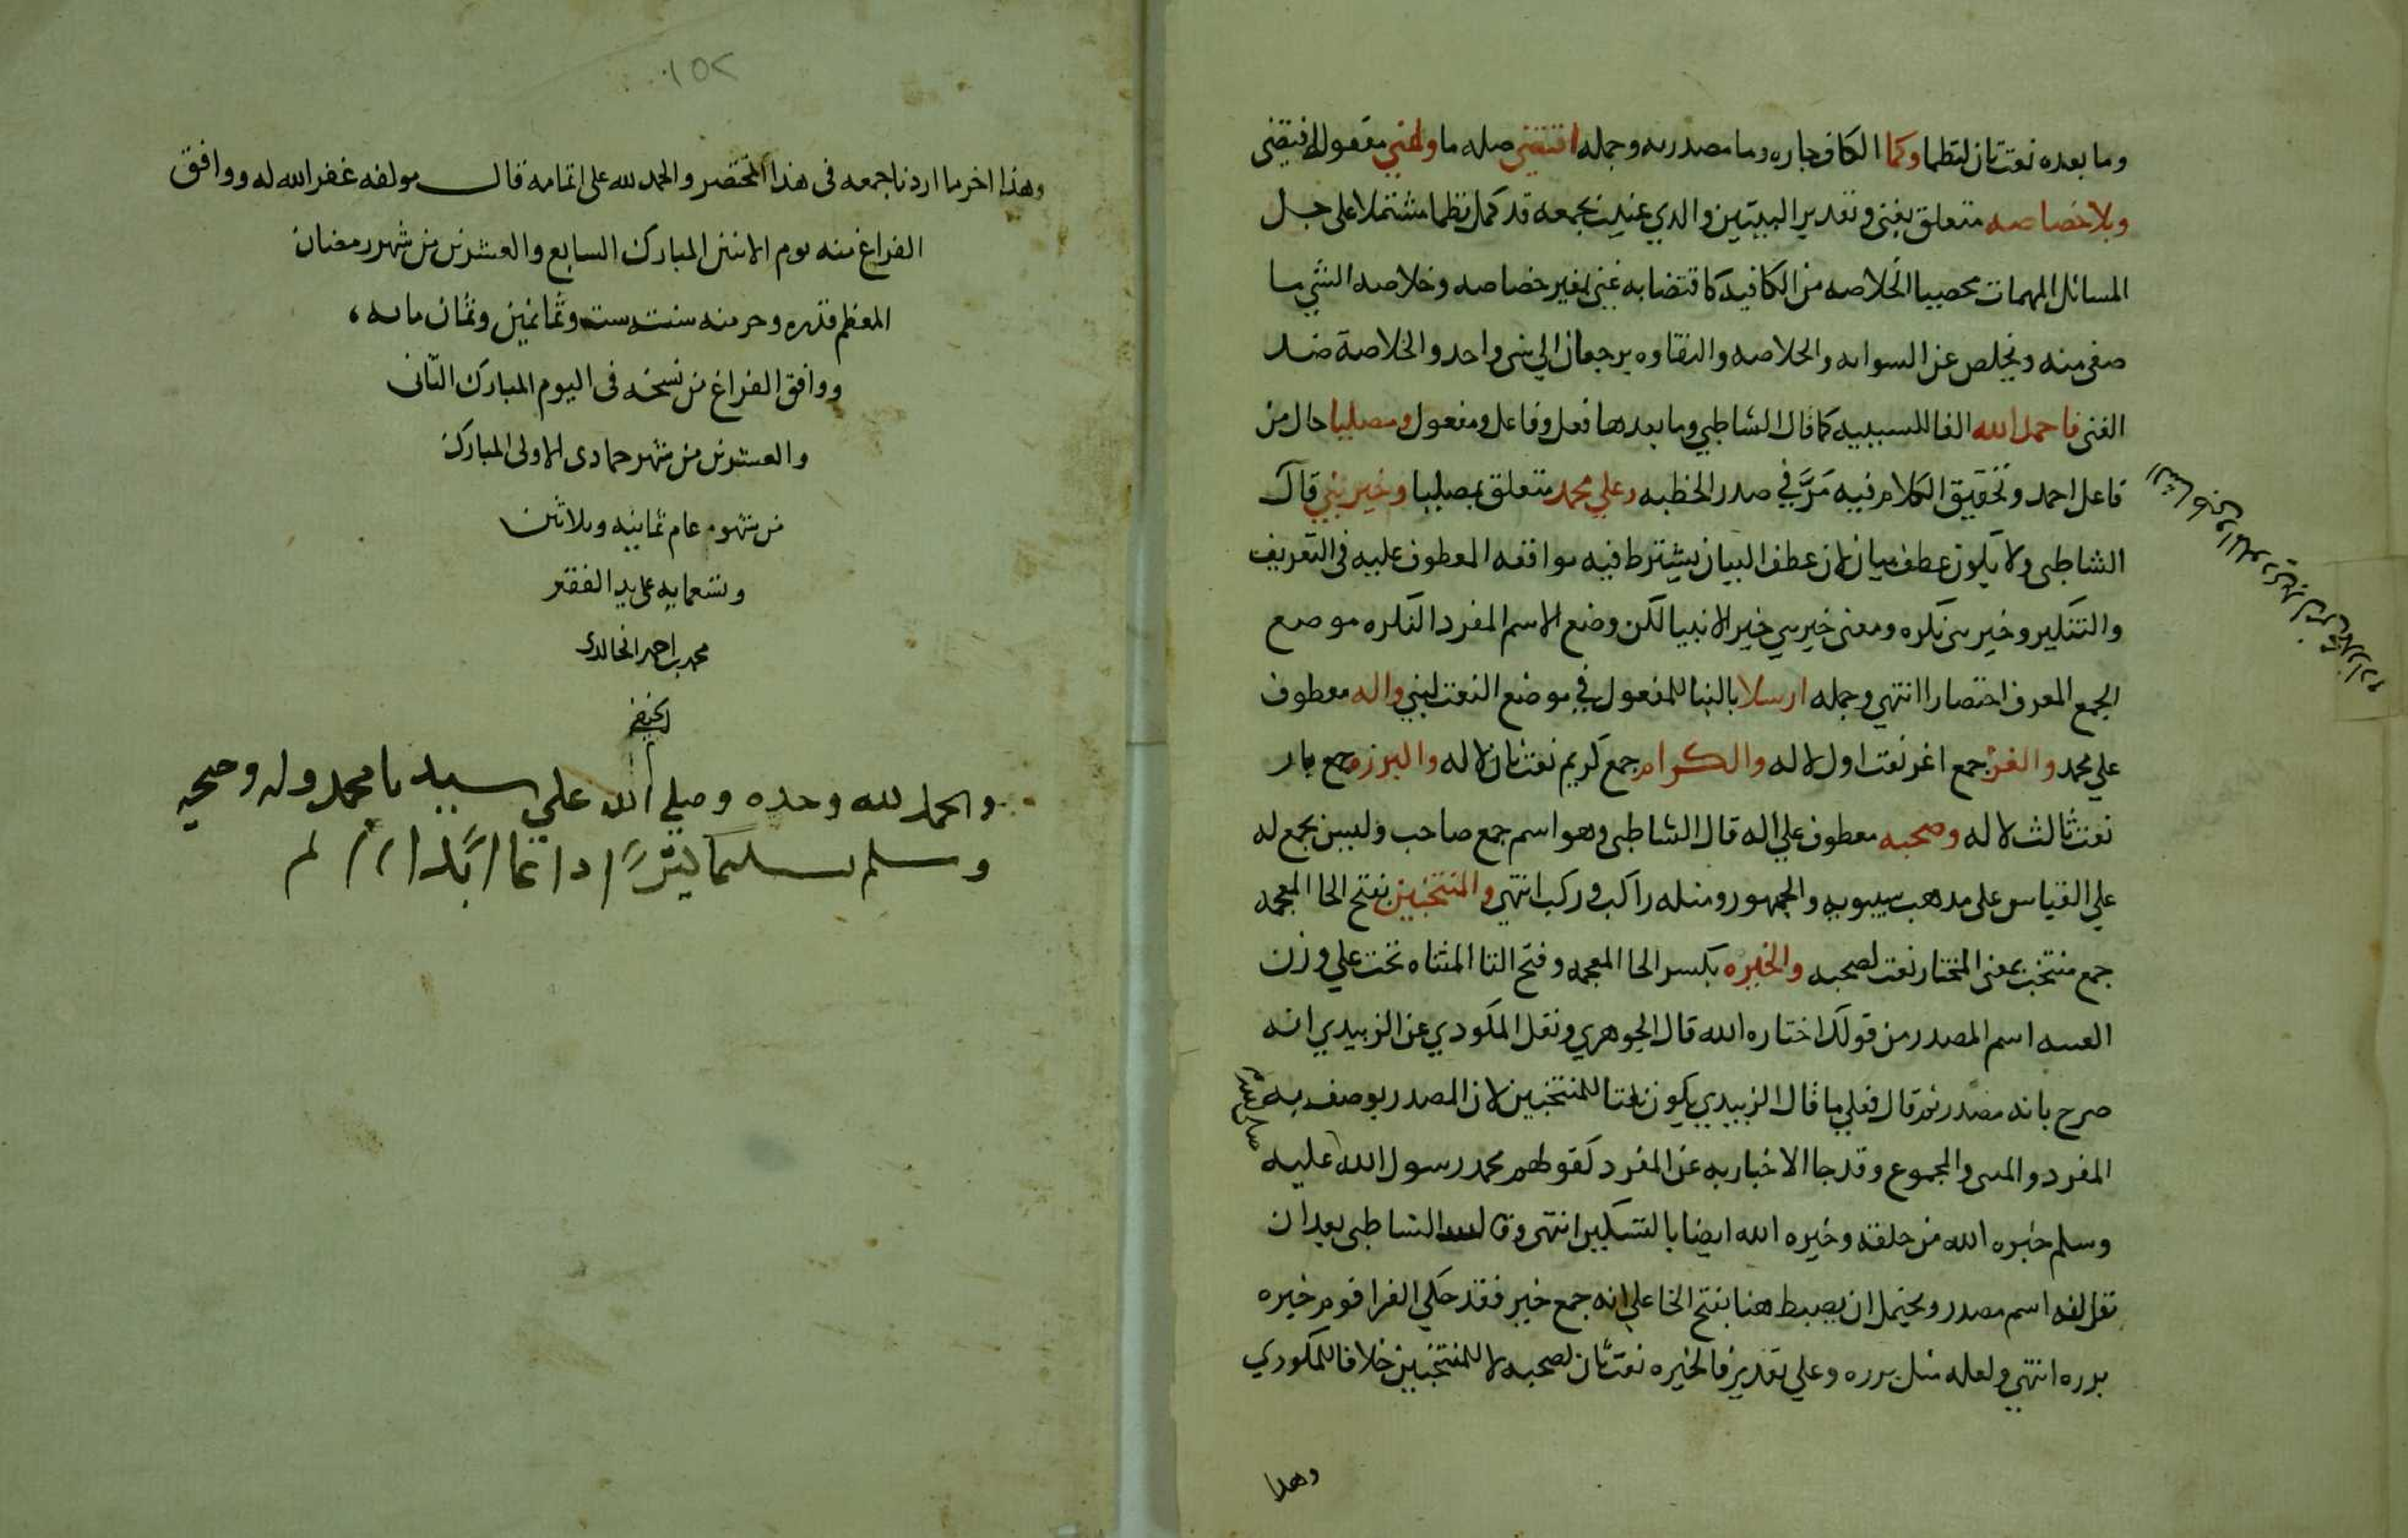 وما بعده نعت ثان لنظما وكما الكاف جاره وما مصدريه وجمله اقتضى صله ما وغني مفعول اقتضى
وبلا خصاصه متعلق بغنى وتقدير البيتين والذي عنيت بجمعه قد كمل نظما مشتملا على جل
المسائل المهمات محصيا الخلاصه من الكافيه كاقتضايه غنى بغير خصاصه وخلاصه الشي ما
صفى منه وتخلص عن الشوايه والخلاصه والنقاوه يرجعان الى شي واحد والخلاصة ضد
الغنى فاحمد الله الفا للسببيه كما قال الشاطبي وما بعدها فعل وفاعل ومفعول ومصليا حال من
فاعل احمد وتحقيق الكلام فيه مر في صدر الخطبه وعلي محمد متعلق بمصليا وخير نبي قال
الشاطبى ولا يكون عطف بيان لان عطف البيان يشترط فيه موافقه المعطوف عليه فى التعريف
والتنكير وخير نبى نكره ومعنى خير نبي خير الانبيا لكن وضع الاسم المفرد النكره موضع
الجمع المعرف اختصارا انتهي وجمله ارسلا بالبنا للمفعول في موضع النعت لنبي واله معطوف
علي محمد والغر جمع اغر نعت اول لاله والكرام جمع كريم نعت ثان لاله والبرره جمع بار
نعت ثالث لاله وصحبه معطوف علي اله قال الشاطبى وهو اسم جمع صاحب وليس بجمع له
علي القياس على مذهب سيبويه والجمهور ومثله راكب وركب انتهي والمنتخبين بفتح الخا المعجمه
جمع منتخب بمعنى المختار نعت لصحبه والخيره بكسر الخا المعجمه وفتح اليا المثناه تحت علي وزن
العنبه اسم المصدر من قولك اختاره الله قال الجوهري ونقل المكودي عن الزبيدي انه
صرح بانه مصدر ثم قال فعلي ما قال الزبيدي يكون نعتا للمنتخبين لان المصدر يوصف به
المفرد والمثنى والمجموع وقد جا الاخبار به عن المفرد كقولهم محمد رسول الله صلى الله عليه
وسلم خيره الله من خلقه وخيره الله ايضا بالتسكين انتهى وقال الشاطبى بعد ان
نقل انه اسم مصدر ويحتمل ان يضبط هنا بفتح الخا علي انه جمع خير فقد حكي الفرا قوم خيره
برره انتهي ولعله مثل برره وعلي تقدير فالخيره نعت ثان لصحبه لا للمنتخبين خلافا للمكودي
وهذا
وهذا اخر ما اردنا جمعه فى هذا المختصر والحمد لله على اتمامه قال مولفه غفر الله له ووافق
الفراغ منه يوم الاثنين المبارك السابع والعشرين من شهر رمضان
المعظم قدره وحرمته سنة ست وثمانين وثمان مايه
ووافق الفراغ من نسخه فى اليوم المبارك الثانى
والعشرين من شهر جمادى الاولى المبارك
من شهور عام ثمانيه وثلاثين
وتسعمايه على يد الفقير
محمد بن احمد الخالدى
الحنفي
والحمد لله وحده وصلي الله علي سيدنا محمد وله وصحبه
وسلم تسليما كثيرًا دائما ابدًا